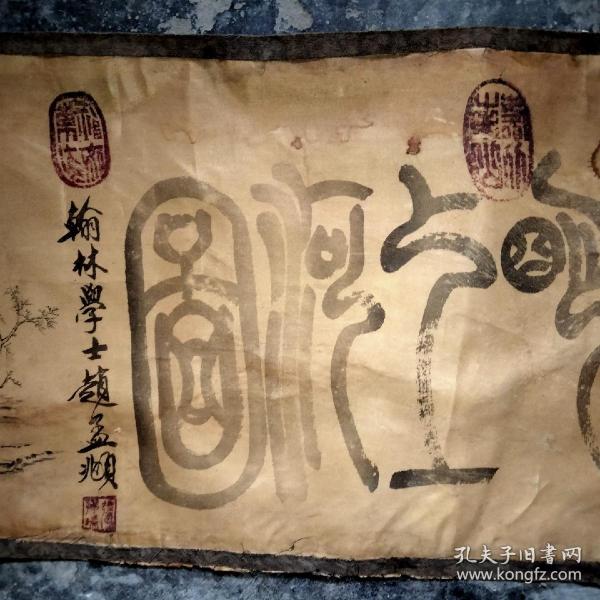 明上河圖
翰林學士趙孟頫
孔夫子旧书网
www.kongfz.com